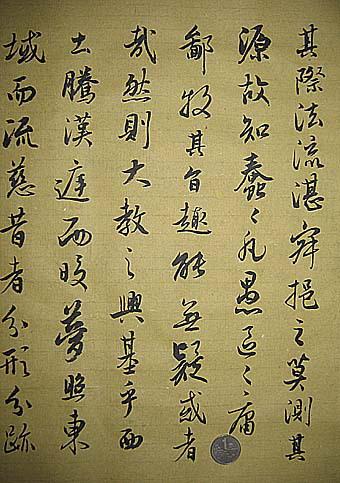 其際法流湛寂挹之莫測其
源故知蠢〻凡愚區〻庸
鄙投其旨趣能無疑或者
哉然則大教之興基乎西
土騰漢庭而皎夢照東
域而流慈昔者分形分跡